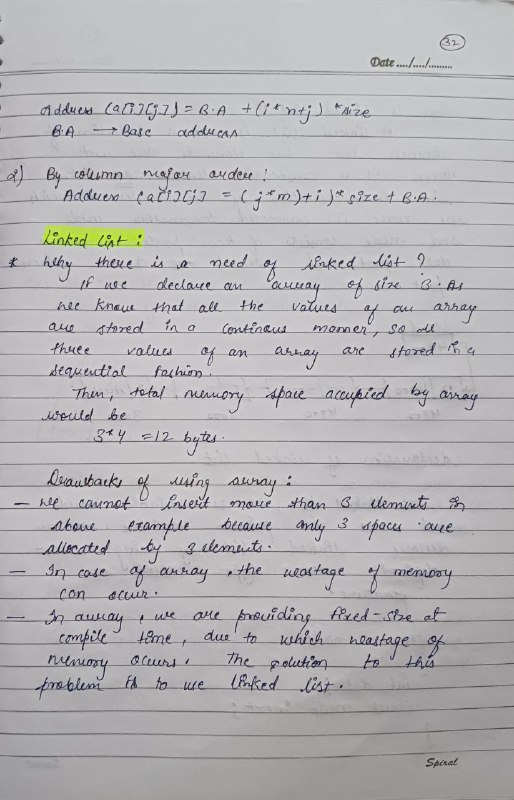 32
Date ..../..../.........
Address (a[i][j]) = B.A + (i * n+j) * size
B.A → Base address
2) By column major order:
Address (a[i][j] = (j*m)+i)* size + B.A.
Linked List:
* Why there is a need of linked list?
If we declare an array of size 3. As
we know that all the values of an array
are stored in a continous manner, so all
three values of an array are stored in a
sequential fashion.
Then, total memory space accupied by array
would be
3*4 = 12 bytes.
Drawbacks of using array:
- We cannot insert more than 3 elements in
above example because only 3 spaces are
allocated by 3 elements.
- In case of array, the wastage of memory
can occur.
- In array, we are providing fixed-size at
compile time, due to which wastage of
memory occurs. The solution to this
problem is to use linked list.
Spiral